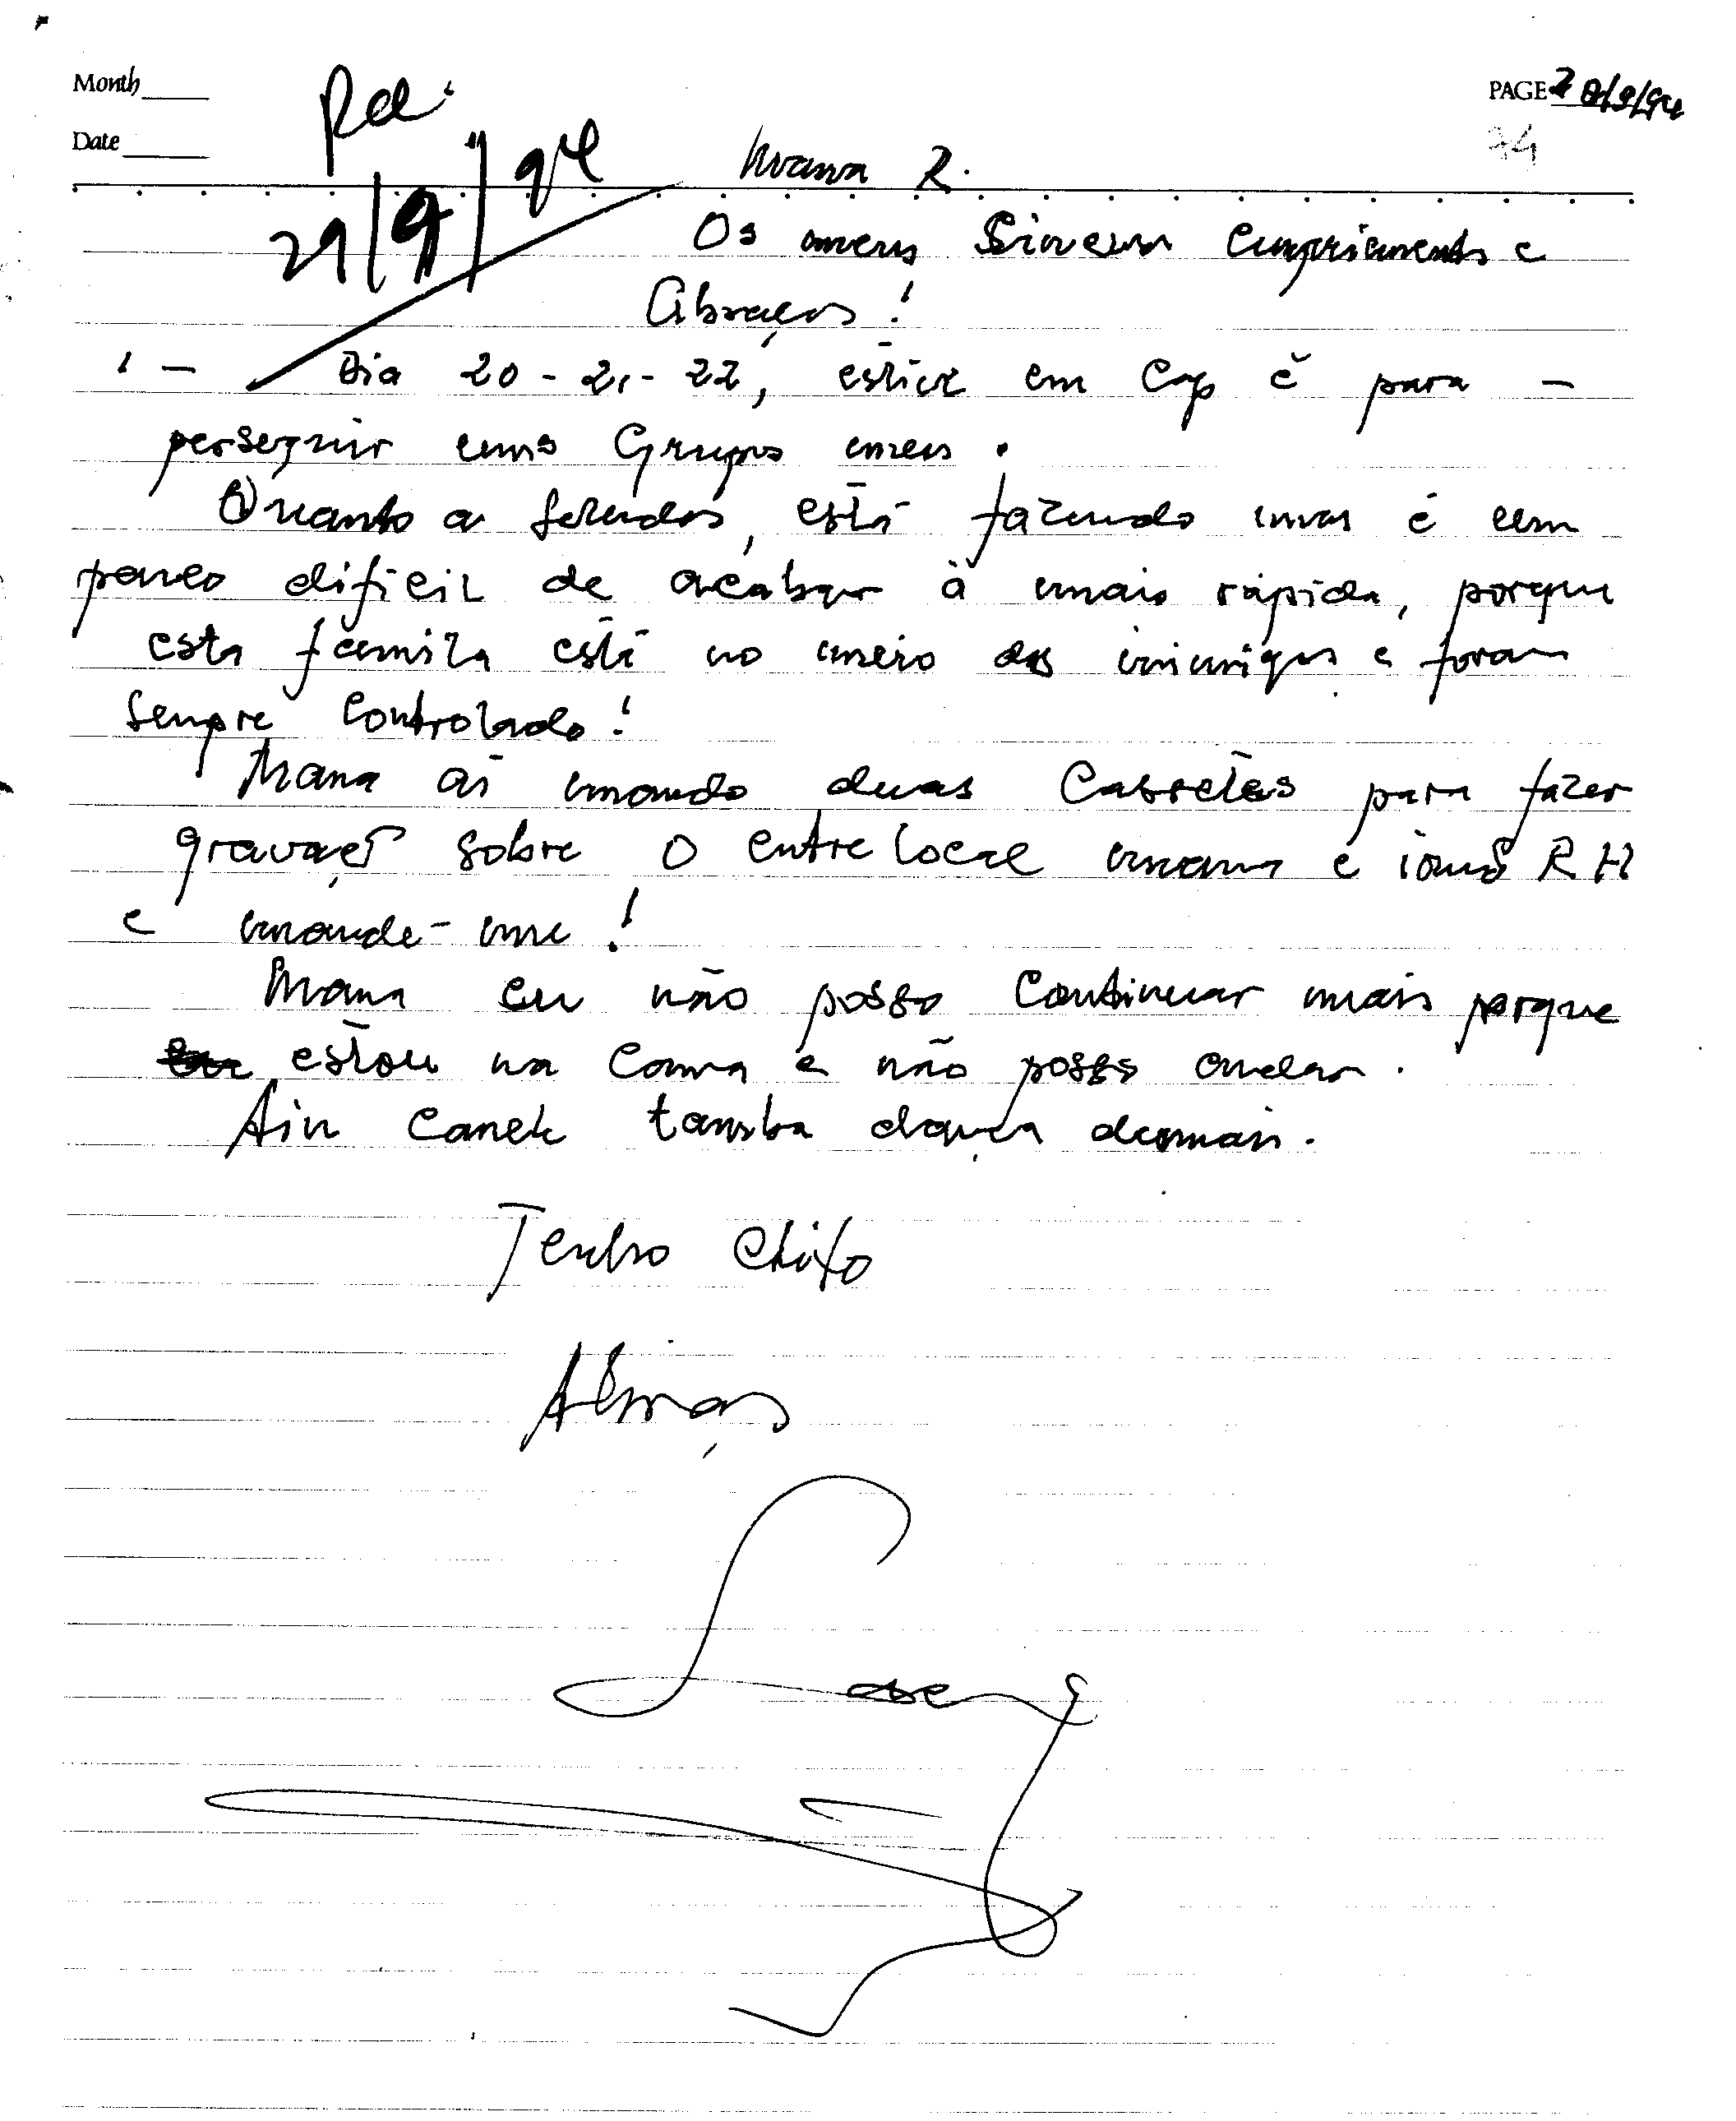 Month
Date
PAGE 28/9/94
94
29/9/94
Mana R.
Os meus Sinceros Cumprimentos e
Abraços!
1 - Dia 20-21-22, estive em é para -
perseguir uns Grupos meus.
Quanto a está fazendo mas é um
pouco dificil de acabar à mais rápida, porque
esta famila está no meio dos inimigos e foram
sempre controlado!
Mana aí mando duas Cassetes para fazer
sobre o entre local mana e R H
e mande-me!
Mana eu não posso continuar mais porque
estou na cama e não posso andar.
demais.